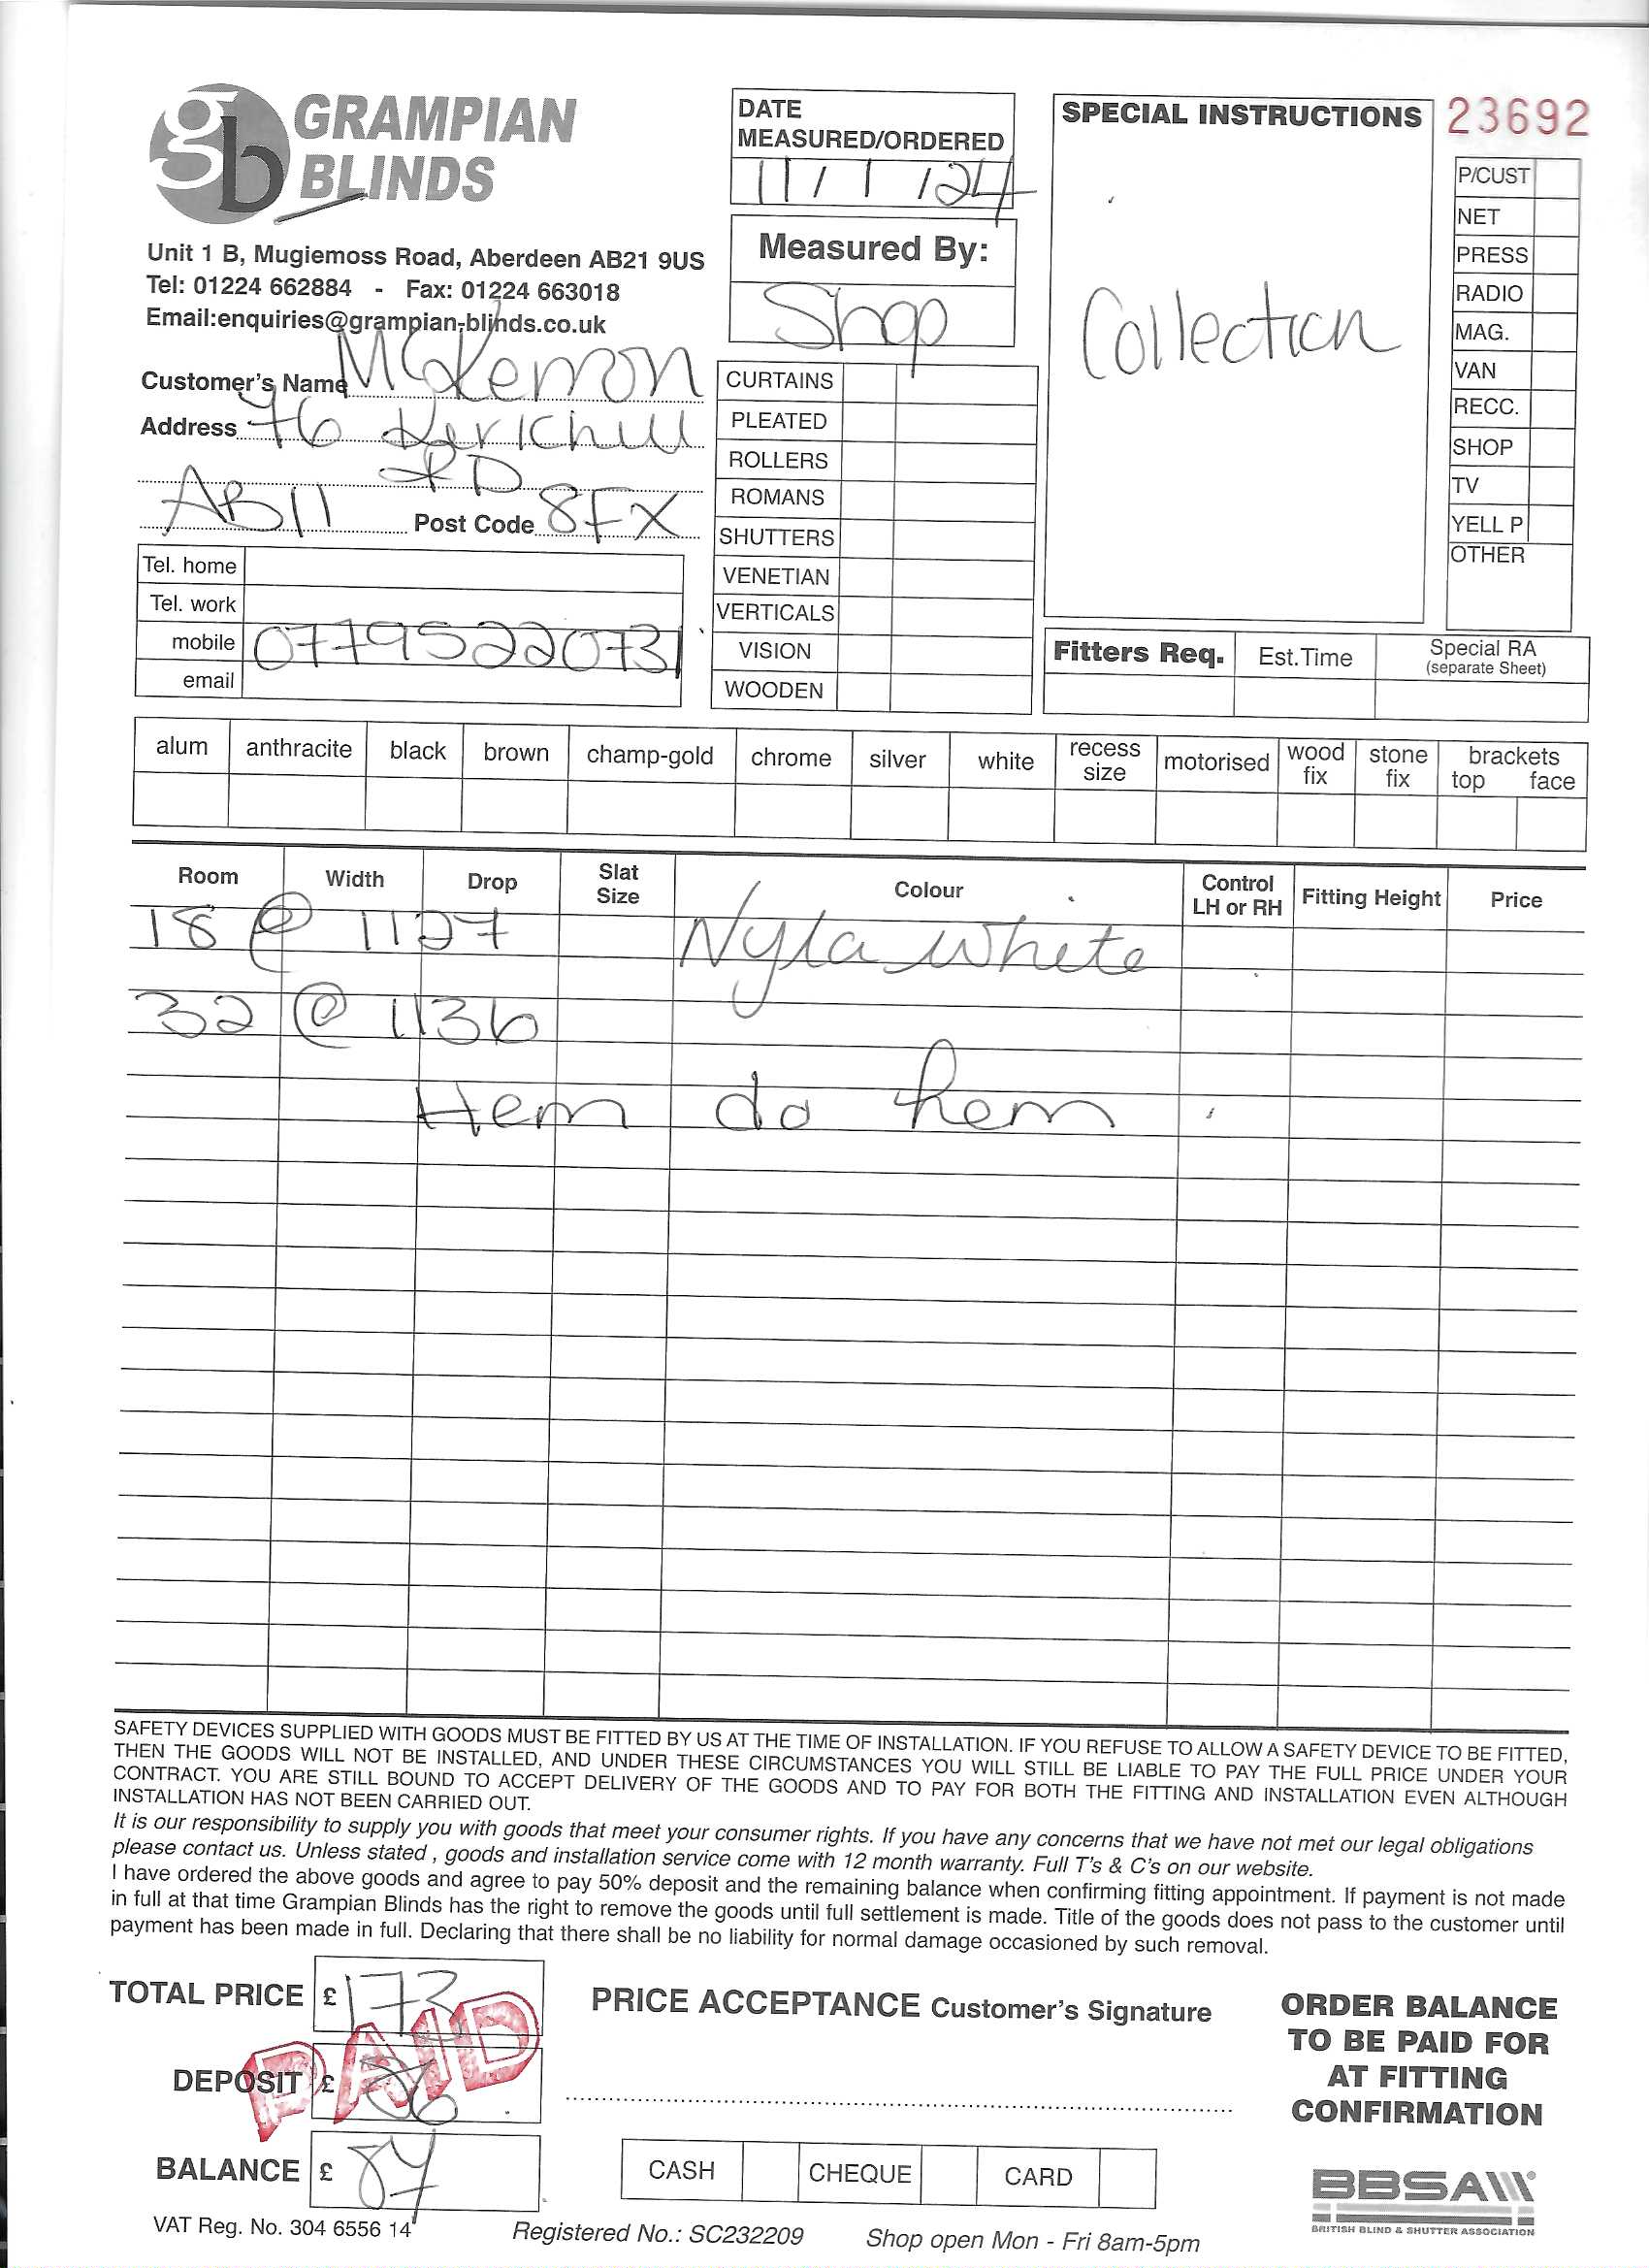 gb GRAMPIAN
BLINDS
Unit 1 B, Mugiemoss Road, Aberdeen AB21 9US
Tel: 01224 662884 - Fax: 01224 663018
Email:enquiries@grampian-blinds.co.uk
Customer's Name
Address 76
RD
AB11 Post Code 8FX
Tel. home
Tel. work
mobile 07795220731
email
DATE
MEASURED/ORDERED
11/1/24
Measured By:
Shop
CURTAINS
PLEATED
ROLLERS
ROMANS
SHUTTERS
VENETIAN
VERTICALS
VISION
WOODEN
SPECIAL INSTRUCTIONS
Collection
23692
P/CUST
NET
PRESS
RADIO
MAG.
VAN
RECC.
SHOP
TV
YELL P
OTHER
Fitters Req. Est.Time Special RA
(separate Sheet)
alum anthracite black brown champ-gold chrome silver white recess size motorised wood fix stone fix brackets top face
Room Width Drop Slat Size Colour Control LH or RH Fitting Height Price
18 @ 1127 Nyla white
32 @ 1136
Hem do hem
SAFETY DEVICES SUPPLIED WITH GOODS MUST BE FITTED BY US AT THE TIME OF INSTALLATION. IF YOU REFUSE TO ALLOW A SAFETY DEVICE TO BE FITTED,
THEN THE GOODS WILL NOT BE INSTALLED, AND UNDER THESE CIRCUMSTANCES YOU WILL STILL BE LIABLE TO PAY THE FULL PRICE UNDER YOUR
CONTRACT. YOU ARE STILL BOUND TO ACCEPT DELIVERY OF THE GOODS AND TO PAY FOR BOTH THE FITTING AND INSTALLATION EVEN ALTHOUGH
INSTALLATION HAS NOT BEEN CARRIED OUT.
It is our responsibility to supply you with goods that meet your consumer rights. If you have any concerns that we have not met our legal obligations
please contact us. Unless stated , goods and installation service come with 12 month warranty. Full T's & C's on our website.
I have ordered the above goods and agree to pay 50% deposit and the remaining balance when confirming fitting appointment. If payment is not made
in full at that time Grampian Blinds has the right to remove the goods until full settlement is made. Title of the goods does not pass to the customer until
payment has been made in full. Declaring that there shall be no liability for normal damage occasioned by such removal.
TOTAL PRICE £ 173
DEPOSIT £ 86
PAID
BALANCE £ 87
PRICE ACCEPTANCE Customer's Signature
CASH CHEQUE CARD
ORDER BALANCE
TO BE PAID FOR
AT FITTING
CONFIRMATION
BBSA
BRITISH BLIND & SHUTTER ASSOCIATION
VAT Reg. No. 304 6556 14 Registered No.: SC232209 Shop open Mon - Fri 8am-5pm